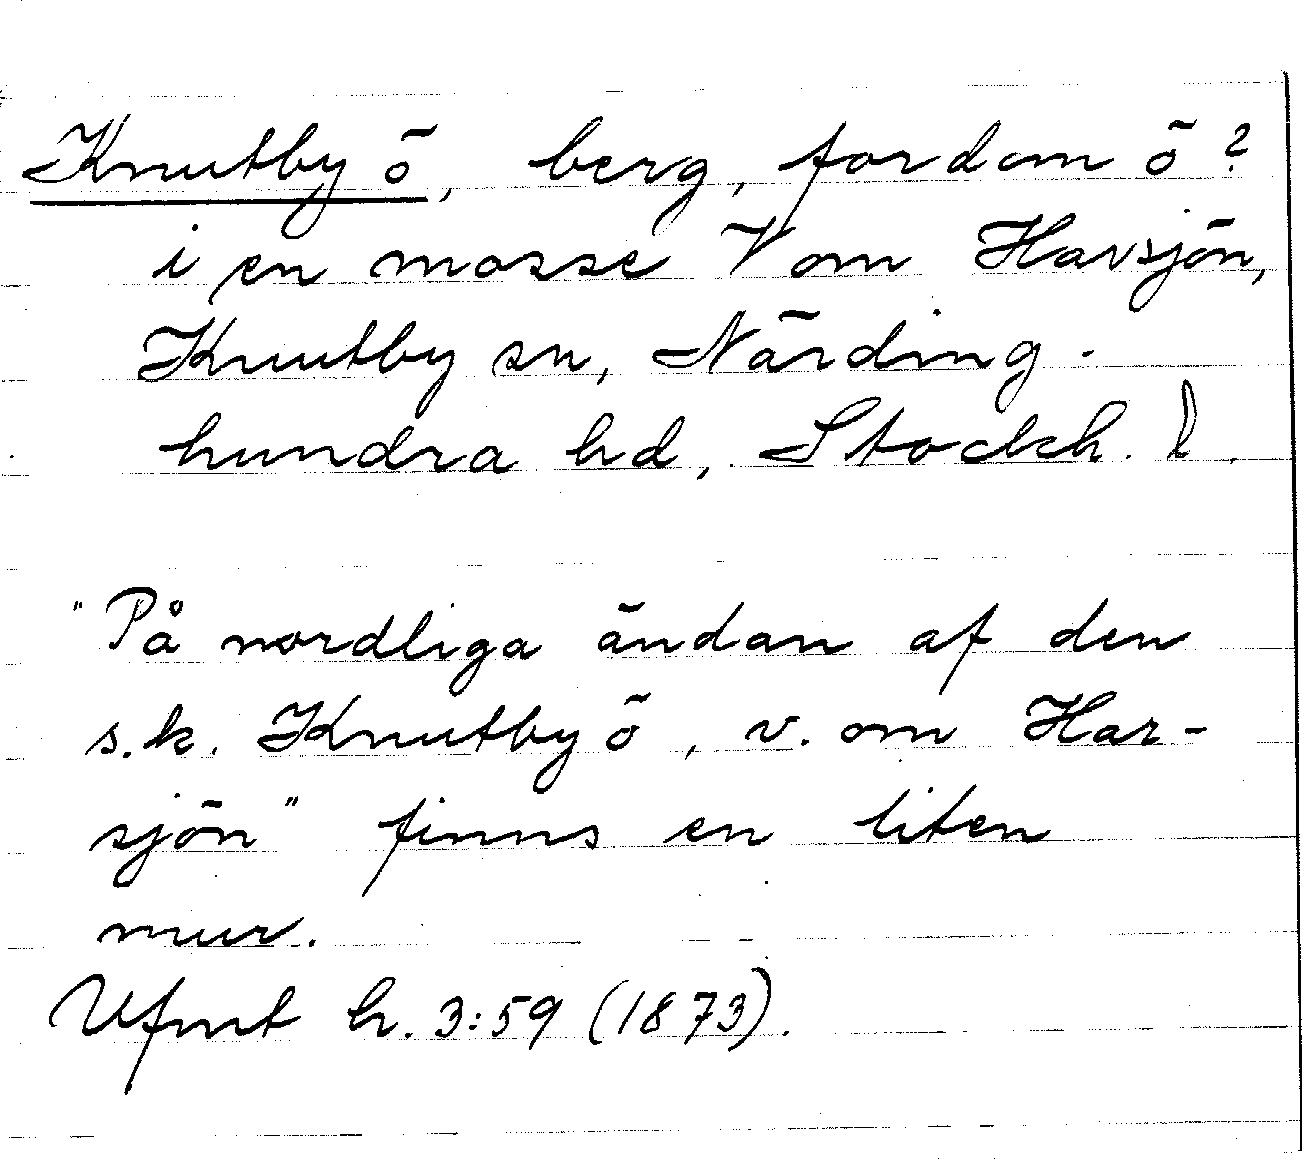 Knutby ö, berg, fordom ö?
i en mosse V om Havsjön,
Knutby sn, Närding-
hundra hd, Stockh. l.
"På nordliga ändan af den
s.k. Knutby ö, v. om Har-
sjön" finns en liten
mur.
Ufmt h. 3:59 (1873).